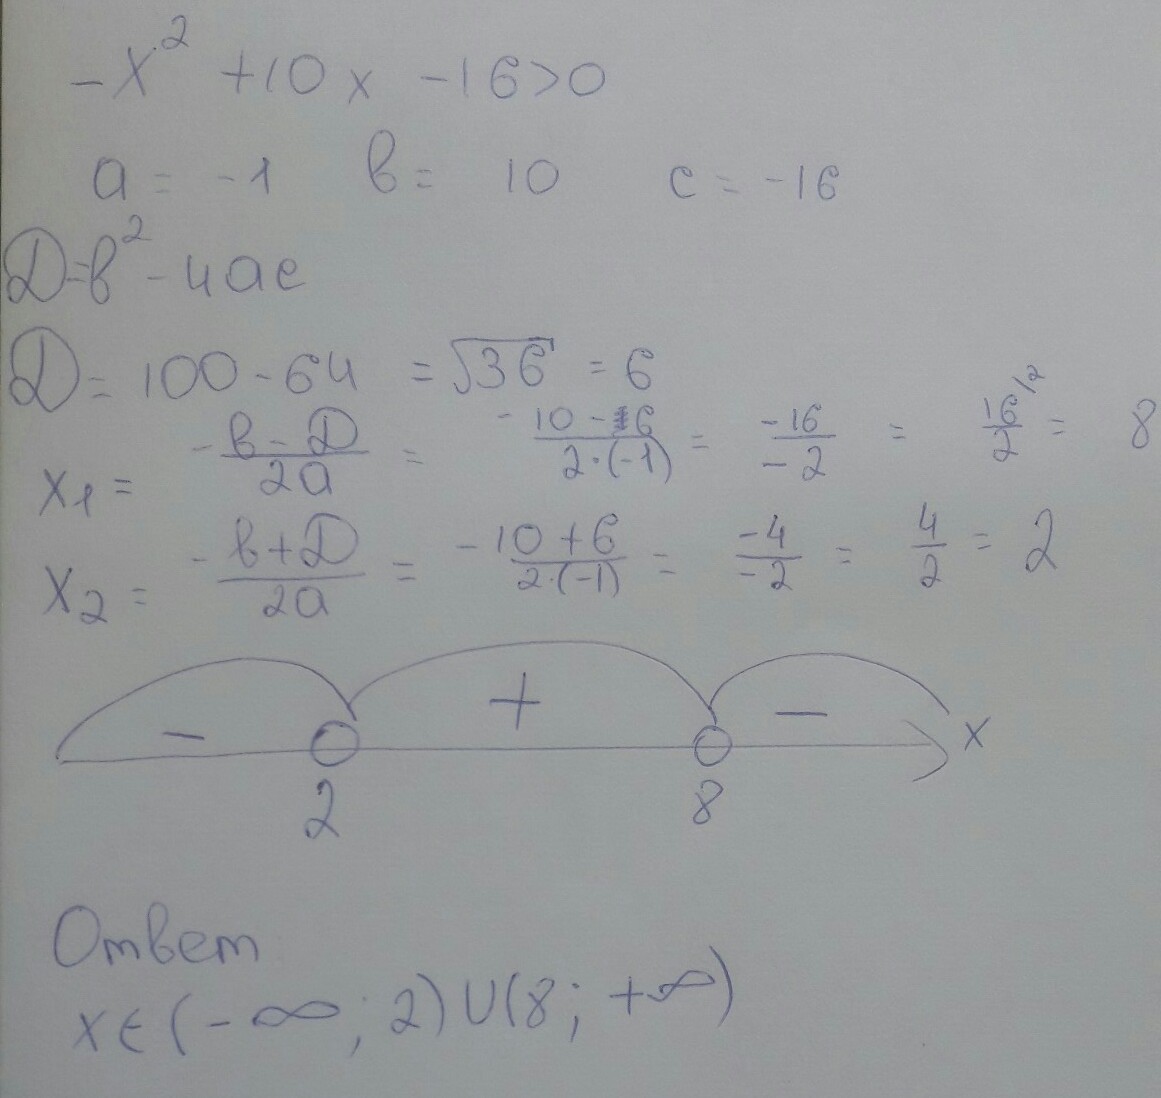 -x² +10x -16>0
a = -1 в = 10 c = -16
D=в² - 4ac
D = 100 - 64 = √36 = 6
x₁ = (-в - D)/(2a) = (-10 - 6)/(2·(-1)) = (-16)/(-2) = 16/2 = 8
x₂ = (-в + D)/(2a) = (-10 + 6)/(2·(-1)) = (-4)/(-2) = 4/2 = 2
- + - x
2 8
Ответ
x∈(-∞; 2)∪(8; +∞)